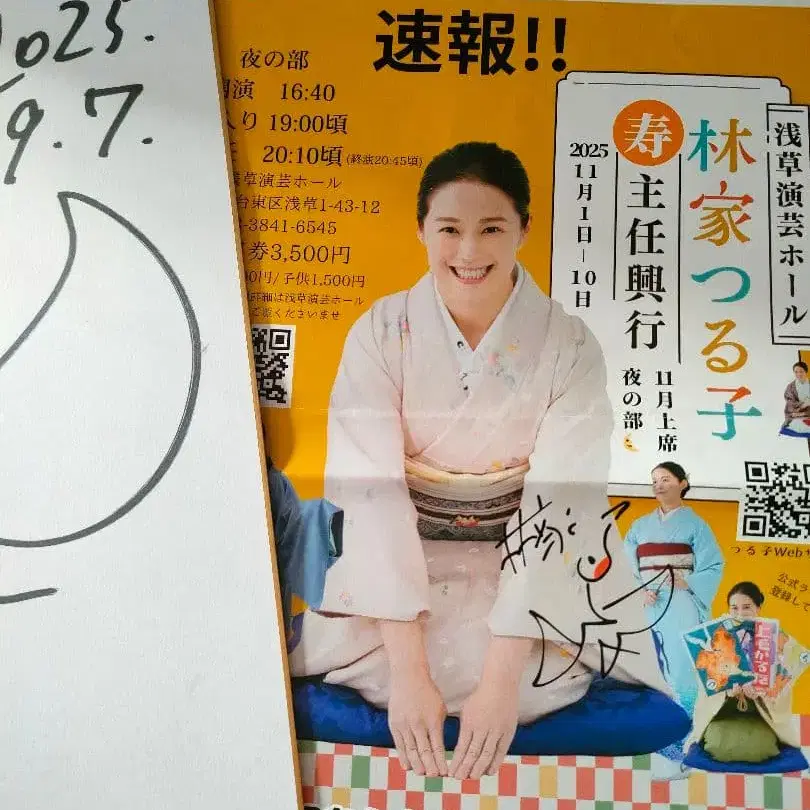 2025.
9.7.
速報!!
夜の部
演 16:40
入り 19:00頃
20:10頃(終演20:45頃)
草演芸ホール
台東区浅草1-43-12
-3841-6545
券3,500円
0円/子供1,500円
詳細は浅草演芸ホール
ご覧くださいませ
浅草演芸ホール
林家つる子
寿
主任興行
2025
11月1日-10日
11月上席
夜の部
つる子Web
公式ラ
登録して
上毛かるた